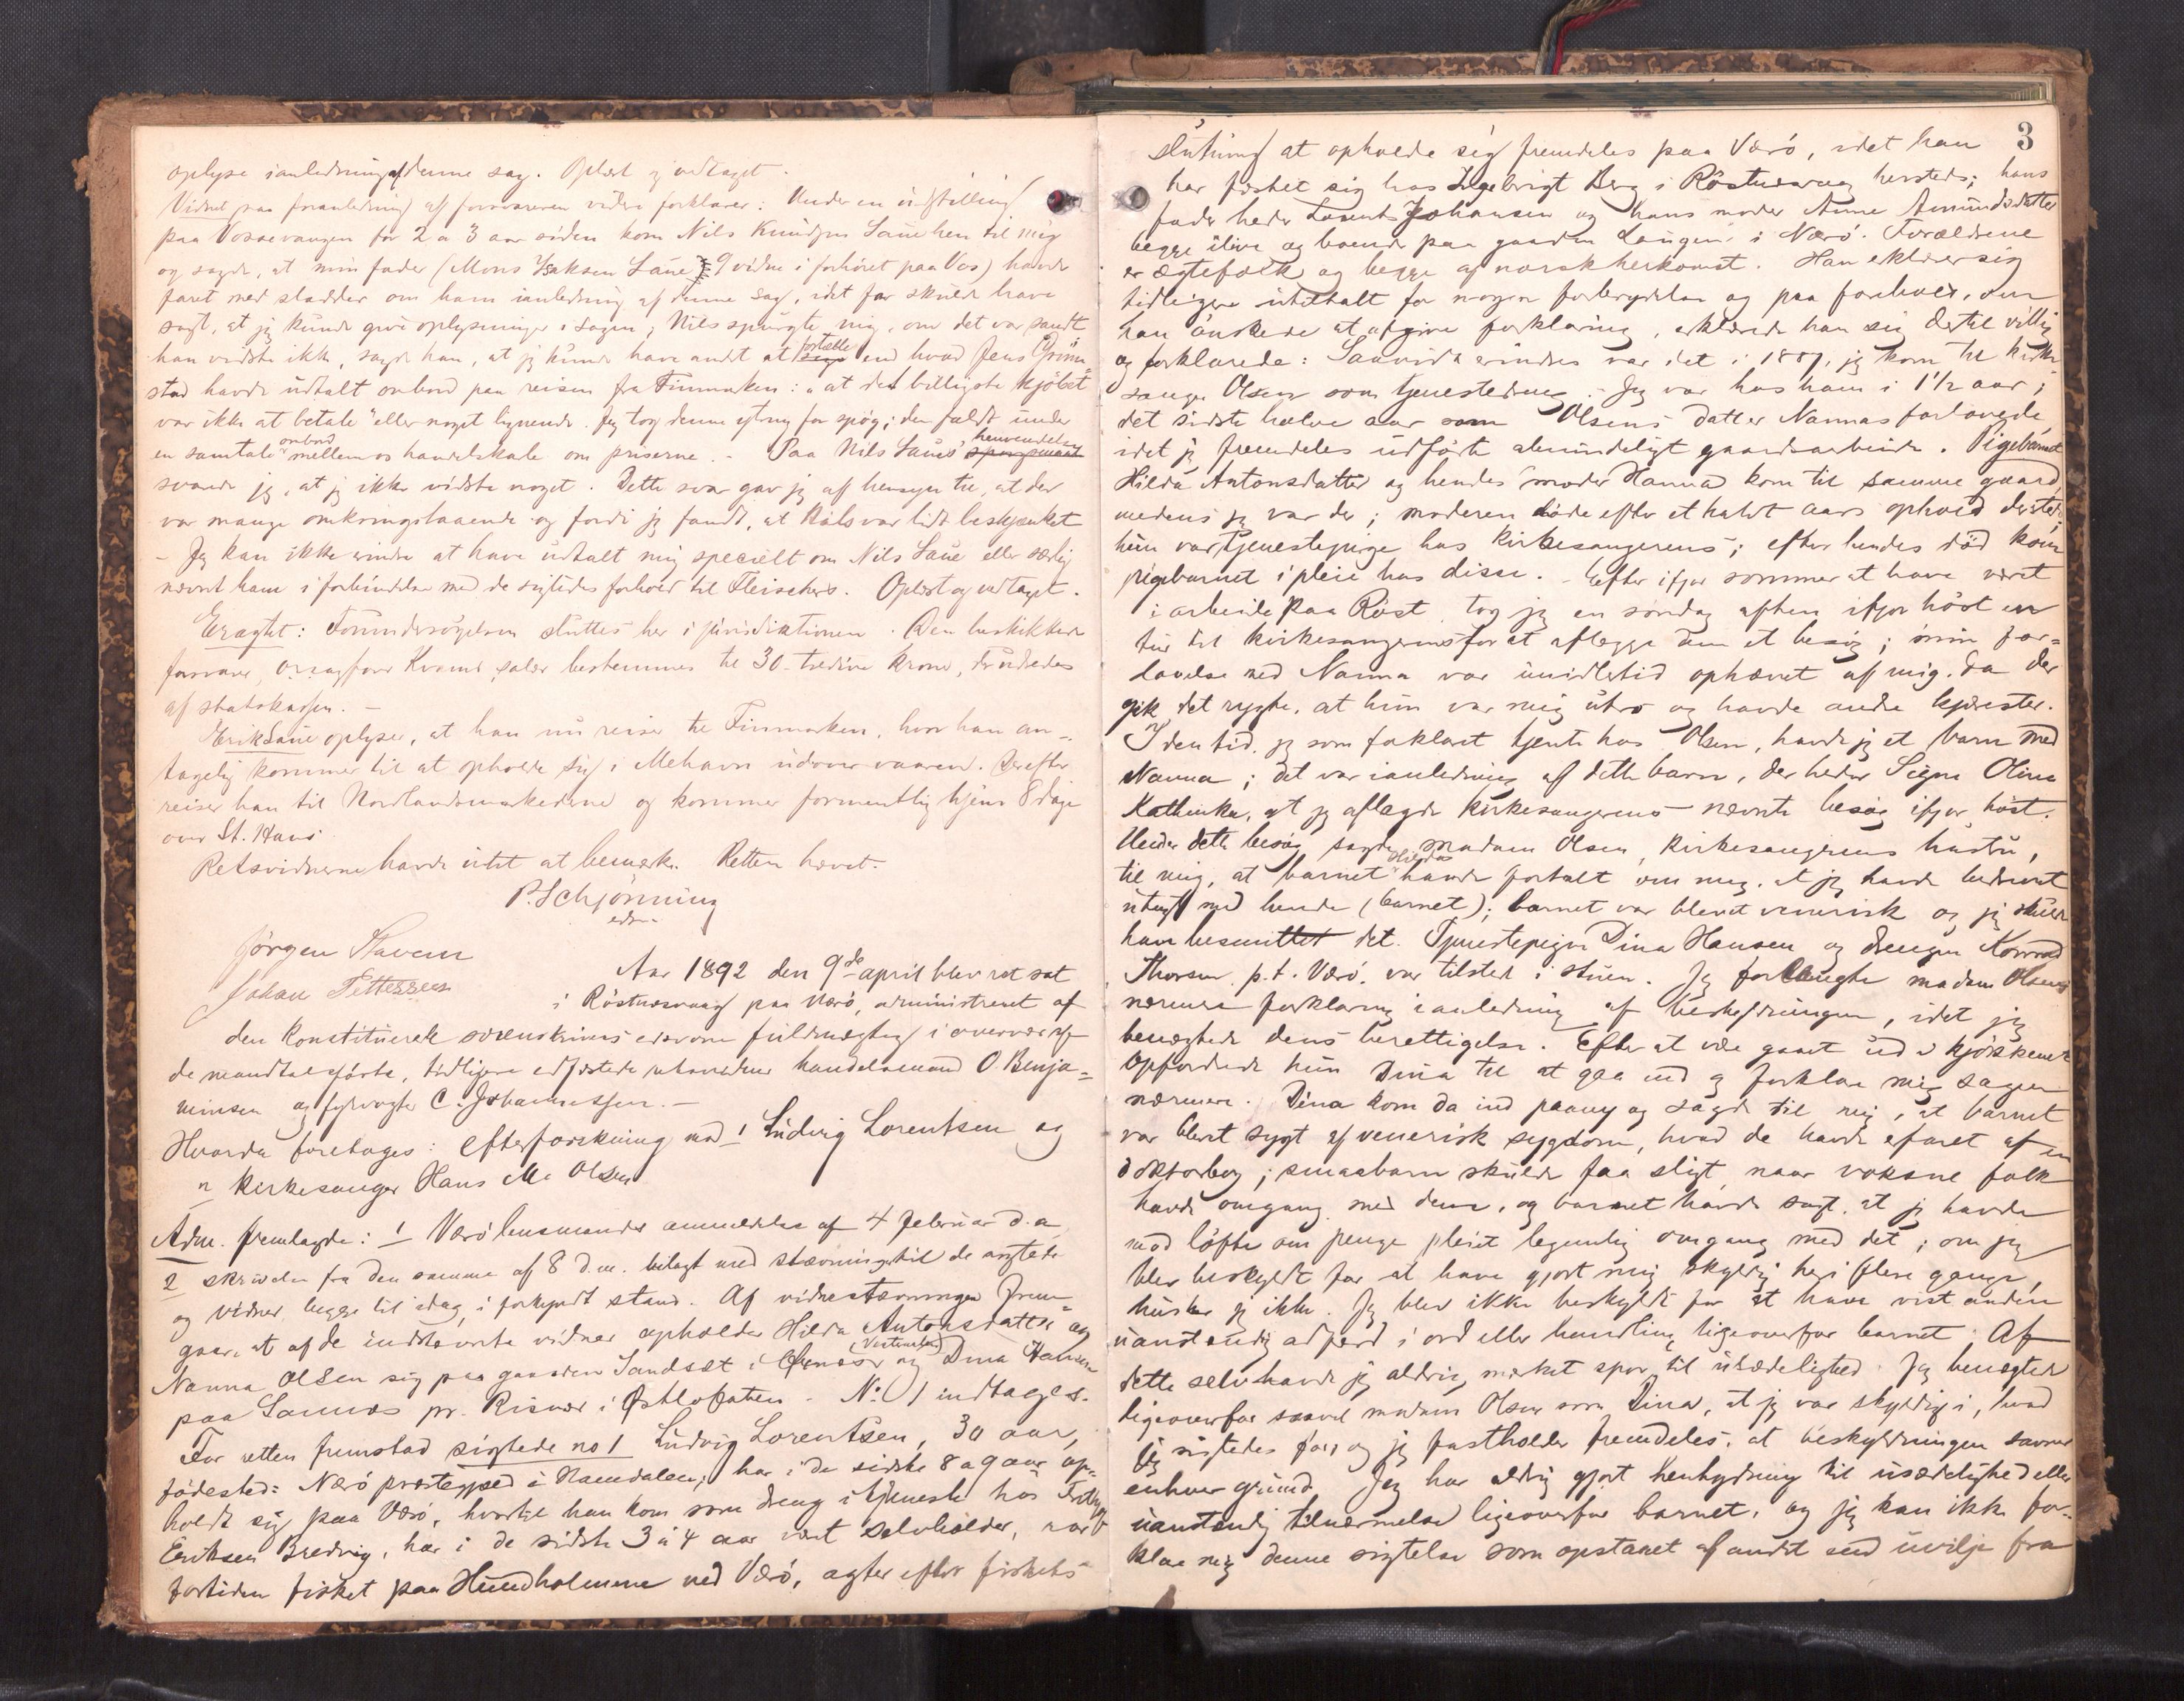 oplyse i anledning af denne sag. Oplæst og vedtaget.
Vidnet paa foranledning af forsvareren videre forklarer: Under en udstilling
paa Vossevangen for 2 a 3 aar siden kom Nils Knudsen Saue hen til mig
og sagde, at min fader (Mons Isaksen Saue, 9 vidne i forhöret paa Vos) havde
faret med sladder om ham i anledning af denne sag, idet far skulde have
sagt, at jeg kunde give oplysninger i sagen; Nils spurgte mig, om det var sandt
han vidste ikke, sagde han, at jeg kunde have andet at fortælle end hvad Jens Grim-
stad havde udtalt ombord paa reisen fra Finmarken: "at det billigste kjöbet
var ikke at betale" eller noget lignende. Jeg tog denne ytring for spög; den faldt under
en samtale ombord mellem os handelskarle om priserne. - Paa Nils Saues henvendelse
svarede jeg, at jeg ikke vidste noget. Dette svar gav jeg af hensyn til, at der
var mange omkringstaaende og fordi jeg fandt, at Nils var lidt beskjænket
- Jeg kan ikke erindre at have udtalt mig specielt om Nils Saue eller særlig
nævnt ham i forbindelse med de sigtedes forhold til Fleischers. Oplæst og vedtaget.
Eragtet: Forundersögelsen sluttes her i jurisdiktionen. Den beskikkede
forsvarer, orsagförer Kvams salær bestemmes til 30 - tredive kroner, der udredes
af statskassen. -
Erik Saue oplyser, at han nu reiser til Finmarken, hvor han an-
tagelig kommer til at opholde sig i Mehavn udover vaaren. Derefter
reiser han til Nordlandsmarkederne og kommer formentlig hjem 8 dage
over St. Hans.
Retsvidnerne havde intet at bemærke. Retten hævet.
P. Schjönning
edv.
Jörgen Stavem
Johan Pettersen
Aar 1892 den 9de april blev ret sat
i Röstnesvaag paa Værö, administreret af
den konstituerede sorenskrivers edsvorne fuldmægtig i overvær af
de mandtalsförte, tidligere edfæstede retsvidner handelsmand O. Benja-
minsen og fyrvogter C. Johannessen. -
Hvorda foretoges: Efterforskning mod 1 Ludvig Lorentsen og
2 Kirkesanger Hans M. Olsen
Adm. fremlagde: 1 Værö lensmands anmeldelse af 4 februar d.a.
2 skrivelse fra den samme af 8 d.m. bilagt med stævning til de sigtede
og vidner begge til idag, i forkyndt stand. Af vidnestævningen frem-
gaar, at af de indstævnte vidner opholder Hilda Antonsdatter og
Nanna Olsen sig paa gaarden Sandset i Öksnes (Vesteraalen) og Dina Hansen
paa Sannes pr. Risvær i Östlofoten. - No 1 indtages.
For retten fremstod sigtede no 1 Ludvig Lorentsen, 30 aar,
födested: Nærö prestegjeld i Namdalen; har i de sidste 8 a 9 aar op-
holdt sig paa Værö, hvortil han kom som dreng i tjeneste hos
Eriksen Bredvig, har i de sidste 3 a 4 aar været selvholder, har
fortiden fisket paa Hundholmene ved Værö, agter efter fiskets
3
slutning at opholde sig fremdeles paa Værö, idet han
har fæstet sig hos Ingebrigt Berg i Röstnesvaag hersteds; hans
fader heder Lorents Johansen og hans moder Anne Amundsdatter
begge ilive og boende paa gaarden Laugen i Nærö. Forældrene
er ægtefolk og begge af norsk herkomst. Han erklærer sig
tidligere utiltalt for nogen forbrydelse og paa forehold, om
han önskede at afgive forklaring, erklærede han sig dertil villig
og forklarede: Saavidt erindres var det i 1887, jeg kom til kirke-
sanger Olsen som tjenestedreng. Jeg var hos ham i 1 1/2 aar;
det sidste halve aar som Olsens datter Nannas forlovede
idet jeg fremdeles udförte almindeligt gaardsarbeide. Pigebarnet
Hilda Antonsdatter og hendes moder Hanna kom til samme gaard,
medens jeg var der; moderen döde efter et halvt aars ophold dersteds;
hun var tjenestepige hos kirkesangerens; efter hendes död kom
pigebarnet i pleie hos disse. - Efter ifjor sommer at have været
i arbeide paa Röst tog jeg en söndag aften ifjor höst en
tur til kirkesangerens for at aflægge dem et besög; min for-
lovelse med Nanna var imidlertid ophævet af mig, da der
gik det rygte, at hun var mig utro og havde andre kjærester.
I den tid, jeg som forklaret tjente hos Olsen, havde jeg et barn med
Nanna; det var i anledning af dette barn, der heder Signe Oline
Kathinka, at jeg aflagde kirkesangerens nævnte besög ifjor höst.
Under dette besög sagde madam Olsen, kirkesangerens hustru,
til mig, at barnet Hilda havde fortalt om mig, at jeg havde bedrevet
utugt med hende (barnet); barnet var blevet venerisk og jeg skulde
have besmittet det. Tjenestepigen Dina Hansen og drengen Konrad
Thorsen p.t. Værö, var tilstede i stuen. Jeg forlangte madam Olsens
nærmere forklaring i anledning af beskyldningen, idet jeg
benægtede dens berettigelse. Efter at være gaaet ud i kjökkenet
opfordrede hun Dina til at gaa ind og forklare mig sagen
nærmere. Dina kom da ind paany og sagde til mig, at barnet
var blevet sygt af venerisk sygdom, hvad de havde erfaret af en
doktorbog; smaabarn skulde faa sligt, naar voksne folk
havde omgang med dem, og barnet havde sagt, at jeg havde
mod löfte om penge pleiet legemlig omgang med det; om jeg
blev beskyldt for at have gjort mig skyldig heri flere gange,
husker jeg ikke. Jeg blev ikke beskyldt for at have vist anden
uanstendig adfærd i ord eller handling ligeoverfor barnet. Af
dette selv havde jeg aldrig mærket spor til usædelighed. Jeg benægtede
ligeoverfor saavel madam Olsen som Dina, at jeg var skyldig i, hvad
jeg sigtedes for, og jeg fastholder fremdeles, at beskyldningen savner
enhver grund. Jeg har aldrig gjort henhydning til usædelighed eller
uanstendig tilnærmelse ligeoverfor barnet, og jeg kan ikke for-
klare mig denne sigtelse som opstaaet af andet end uvilje fra